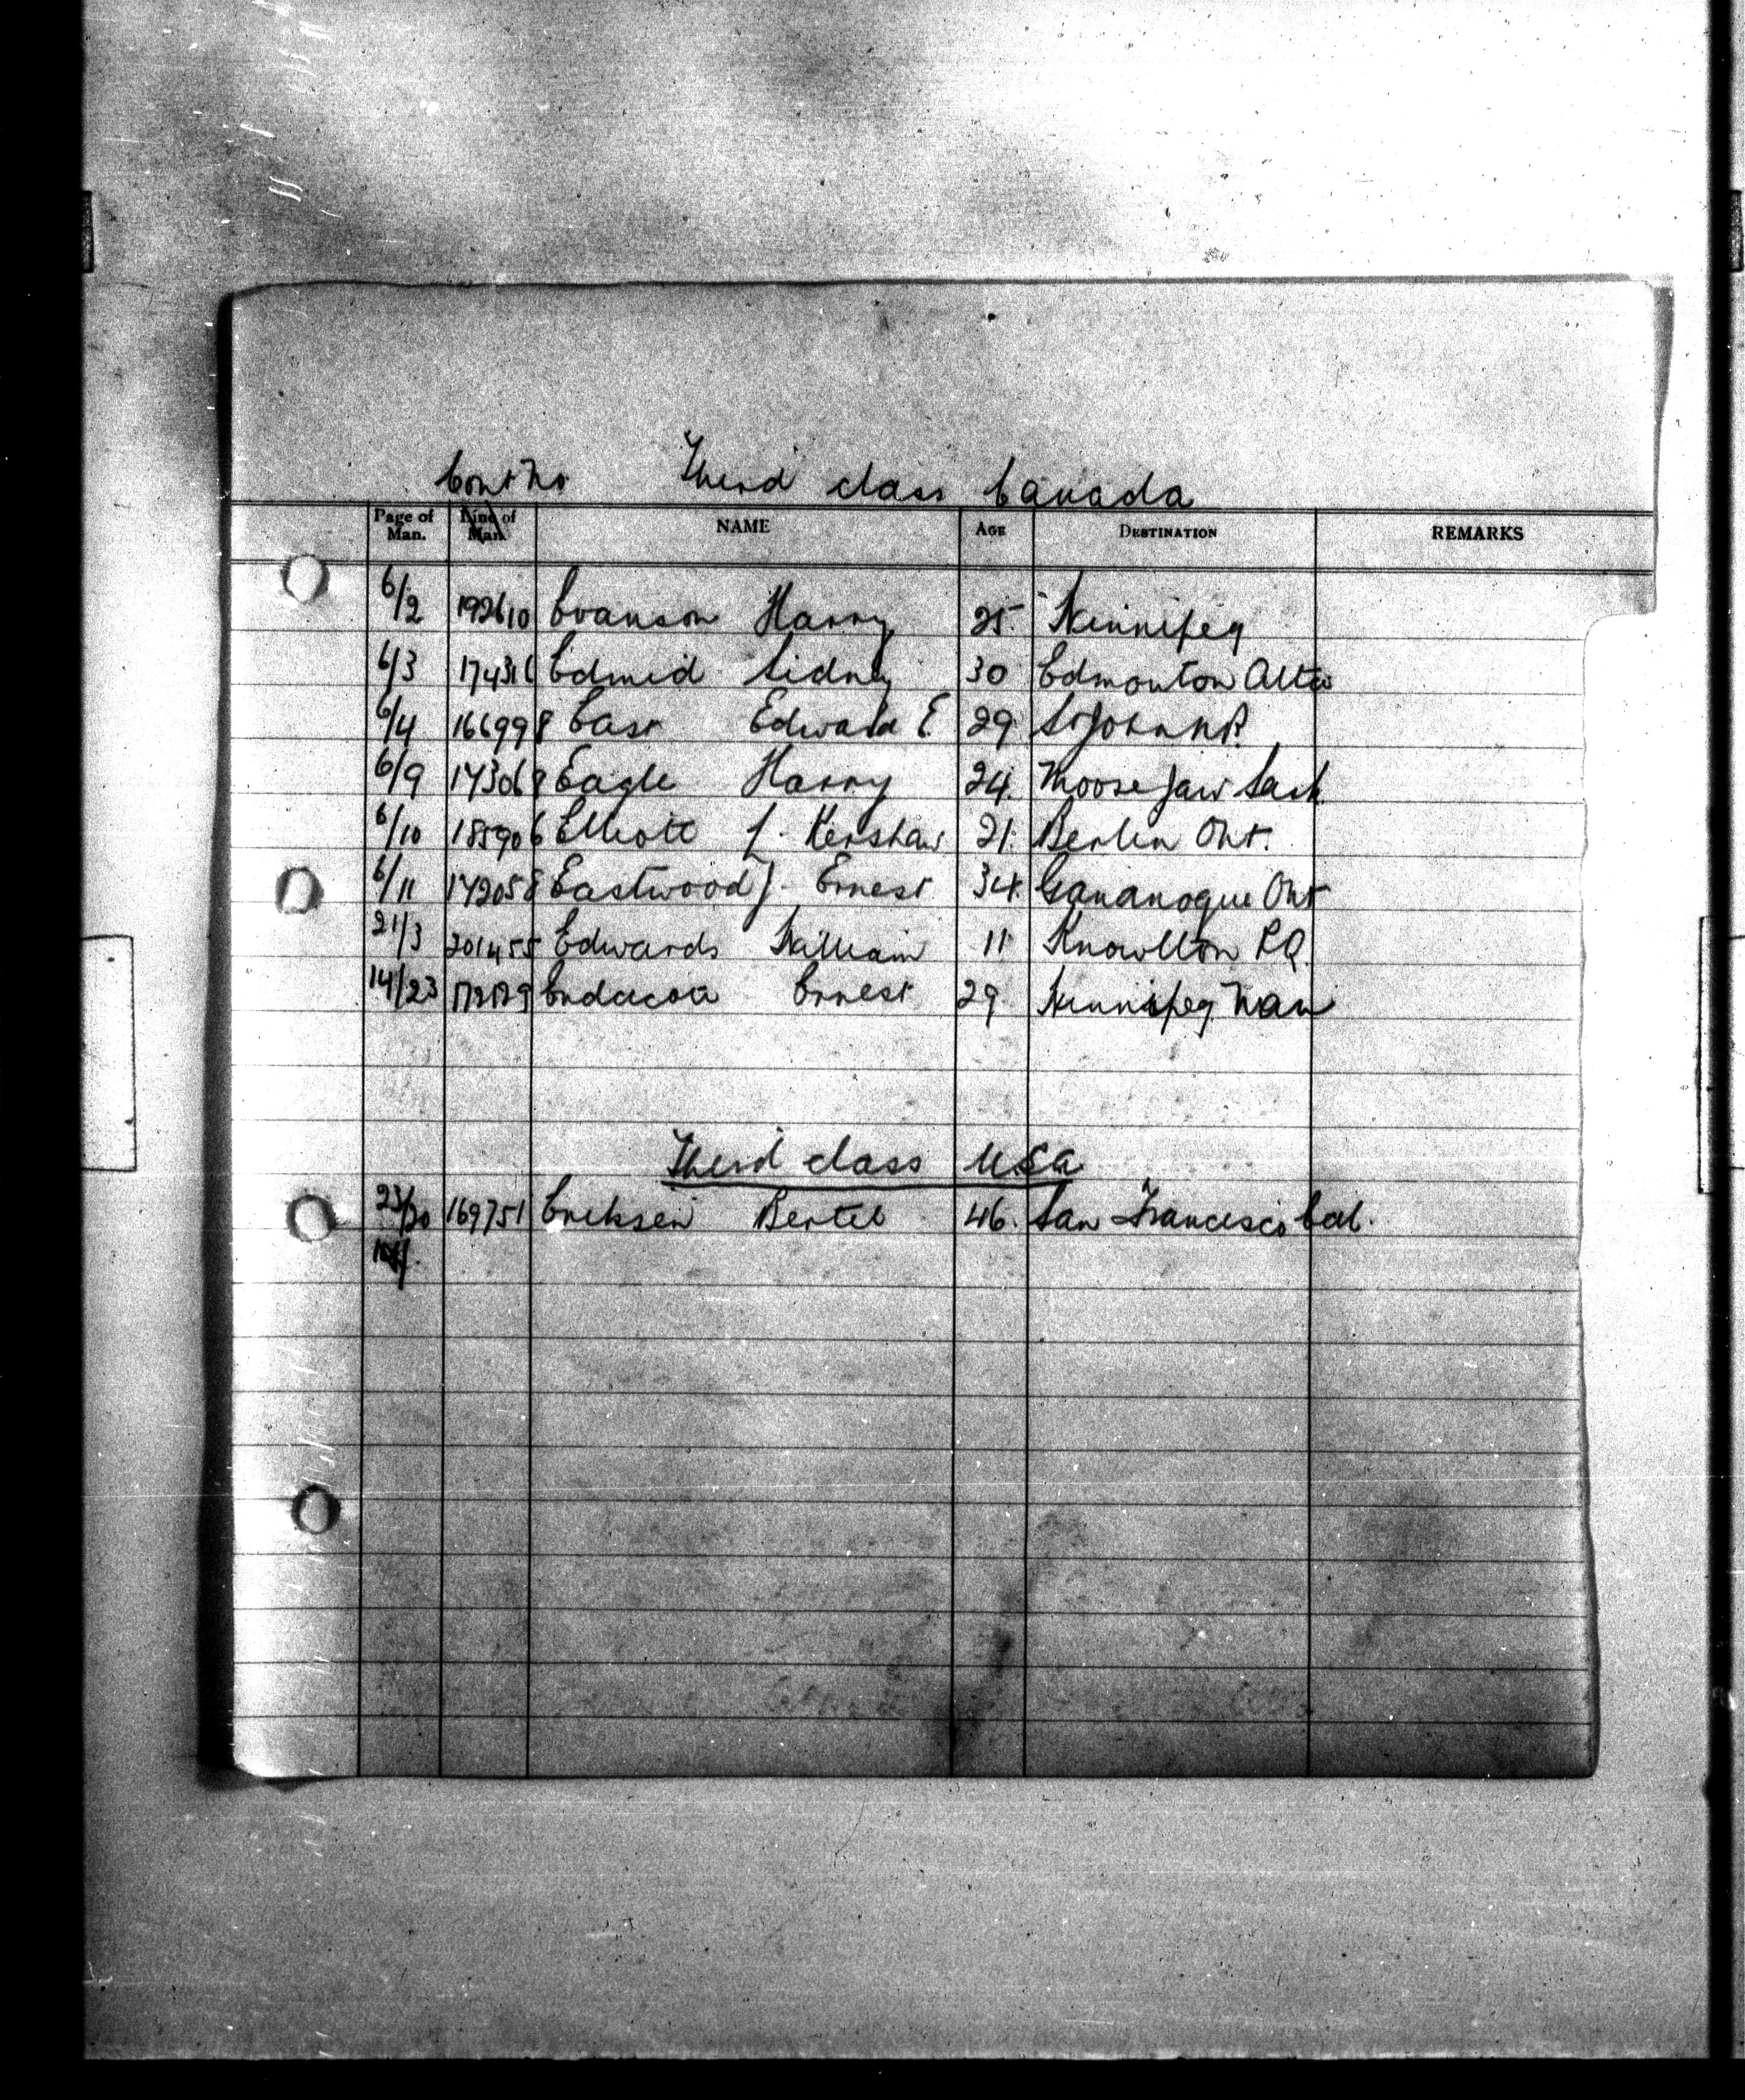 Cont No Third class Canada
Page of Man. Line of Man NAME AGE DESTINATION REMARKS
6/2 192610 Evanson Harry 25. Winnipeg
6/3 174316 Edmid Sidney 30 Edmonton Alta
6/4 166998 East Edward E. 29 St John N.B.
6/9 173068 Eagle Harry 24. Moose Jaw Sask
6/10 185906 Elliott J. Kershaw 21. Berlin Ont.
6/11 172058 Eastwood J. Ernest 34. Gananoque Ont
21/3 201455 Edwards William 11 Knowlton P.Q.
14/23 Ernest 29 Winnipeg Man
Third class USA
23/20 169751 Eriksen Bertel 46. San Francisco Cal.